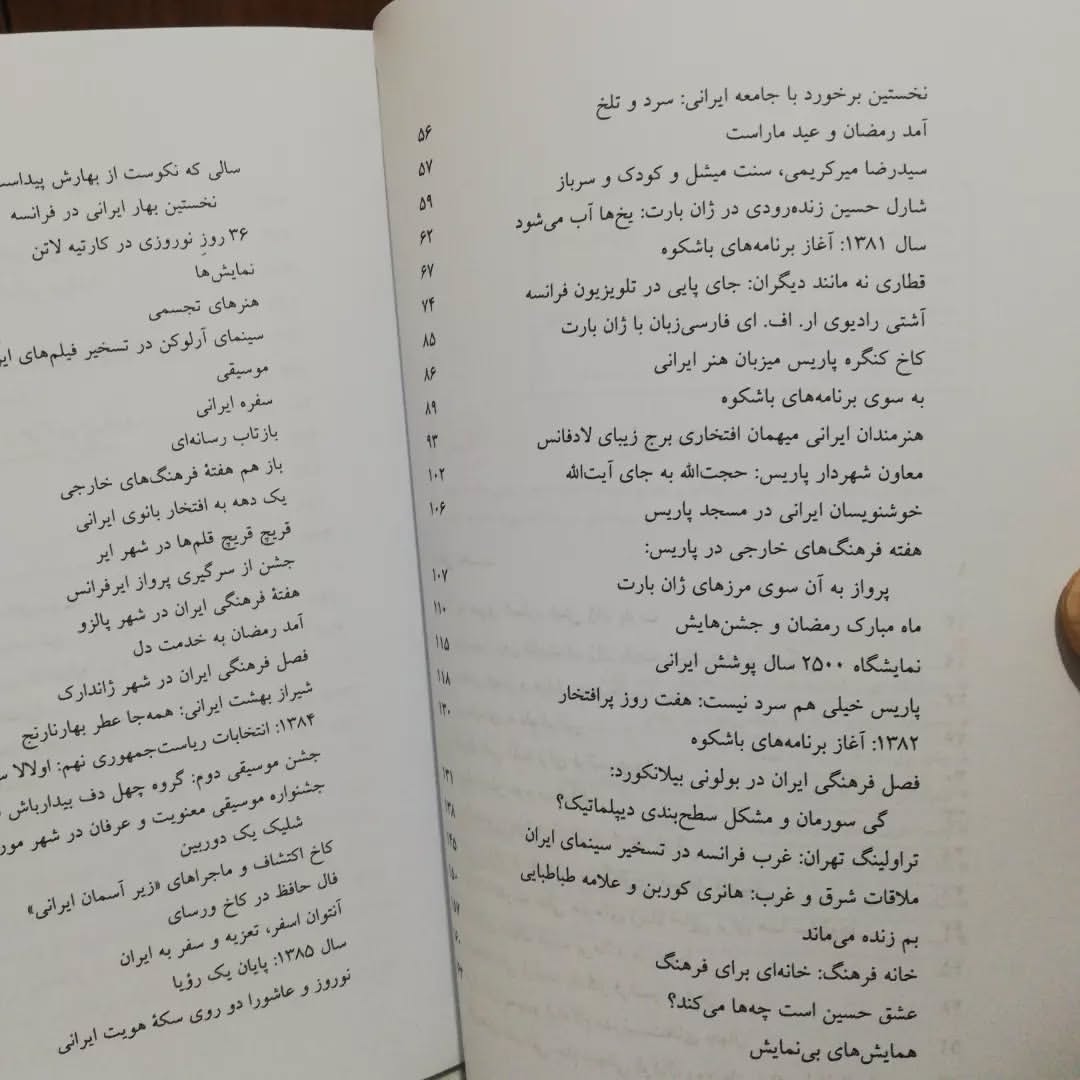 نخستین برخورد با جامعه ایرانی: سرد و تلخ
آمد رمضان و عید ماراست ۵۶
سیدرضا میرکریمی، سنت میشل و کودک و سرباز ۵۷
شارل حسین زنده‌رودی در ژان بارت: یخ‌ها آب می‌شود ۵۹
سال ۱۳۸۱: آغاز برنامه‌های باشکوه ۶۲
قطاری نه مانند دیگران: جای پایی در تلویزیون فرانسه ۶۷
آشتی رادیوی ار. اف. ای فارسی‌زبان با ژان بارت ۷۴
کاخ کنگره پاریس میزبان هنر ایرانی ۸۵
به سوی برنامه‌های باشکوه ۸۶
هنرمندان ایرانی میهمان افتخاری برج زیبای لادفانس ۸۹
معاون شهردار پاریس: حجت‌الله به جای آیت‌الله ۹۳
خوشنویسان ایرانی در مسجد پاریس ۱۰۲
هفته فرهنگ‌های خارجی در پاریس: ۱۰۶
پرواز به آن سوی مرزهای ژان بارت ۱۰۷
ماه مبارک رمضان و جشن‌هایش ۱۱۰
نمایشگاه ۲۵۰۰ سال پوشش ایرانی ۱۱۵
پاریس خیلی هم سرد نیست: هفت روز پرافتخار ۱۱۸
۱۳۸۲: آغاز برنامه‌های باشکوه ۱۲۰
فصل فرهنگی ایران در بولونی بیلانکورد:
گی سورمان و مشکل سطح‌بندی دیپلماتیک؟ ۱۳۱
تراولینگ تهران: غرب فرانسه در تسخیر سینمای ایران ۱۳۸
ملاقات شرق و غرب: هانری کوربن و علامه طباطبایی ۱۴۵
بم زنده می‌ماند ۱۵۰
خانه فرهنگ: خانه‌ای برای فرهنگ
عشق حسین است چه‌ها می‌کند؟
همایش‌های بی‌نمایش
سالی که نکوست از بهارش
نخستین بهار ایرانی در فرانسه
۳۶ روزِ نوروزی در کارتیه لاتن
نمایش‌ها
هنرهای تجسمی
سینمای آرلوکن در تسخیر فیلم‌های
موسیقی
سفره ایرانی
بازتاب رسانه‌ای
باز هم هفتهٔ فرهنگ‌های خارجی
یک دهه به افتخار بانوی ایرانی
قریچ قریچ قلم‌ها در شهر ایر
جشن از سرگیری پرواز ایرفرانس
هفتهٔ فرهنگی ایران در شهر پالزو
آمد رمضان به خدمت دل
فصل فرهنگی ایران در شهر ژاندارک
شیراز بهشت ایرانی: همه‌جا عطر بهارنارنج
۱۳۸۴: انتخابات ریاست‌جمهوری نهم: اولالا
جشن موسیقی دوم: گروه چهل دف بیدارباش
جشنواره موسیقی معنویت و عرفان در شهر
شلیک یک دوربین
کاخ اکتشاف و ماجراهای «زیر آسمان ایرانی»
فال حافظ در کاخ ورسای
آنتوان اسفر، تعزیه و سفر به ایران
سال ۱۳۸۵: پایان یک رؤیا
نوروز و عاشورا دو روی سکهٔ هویت ایرانی